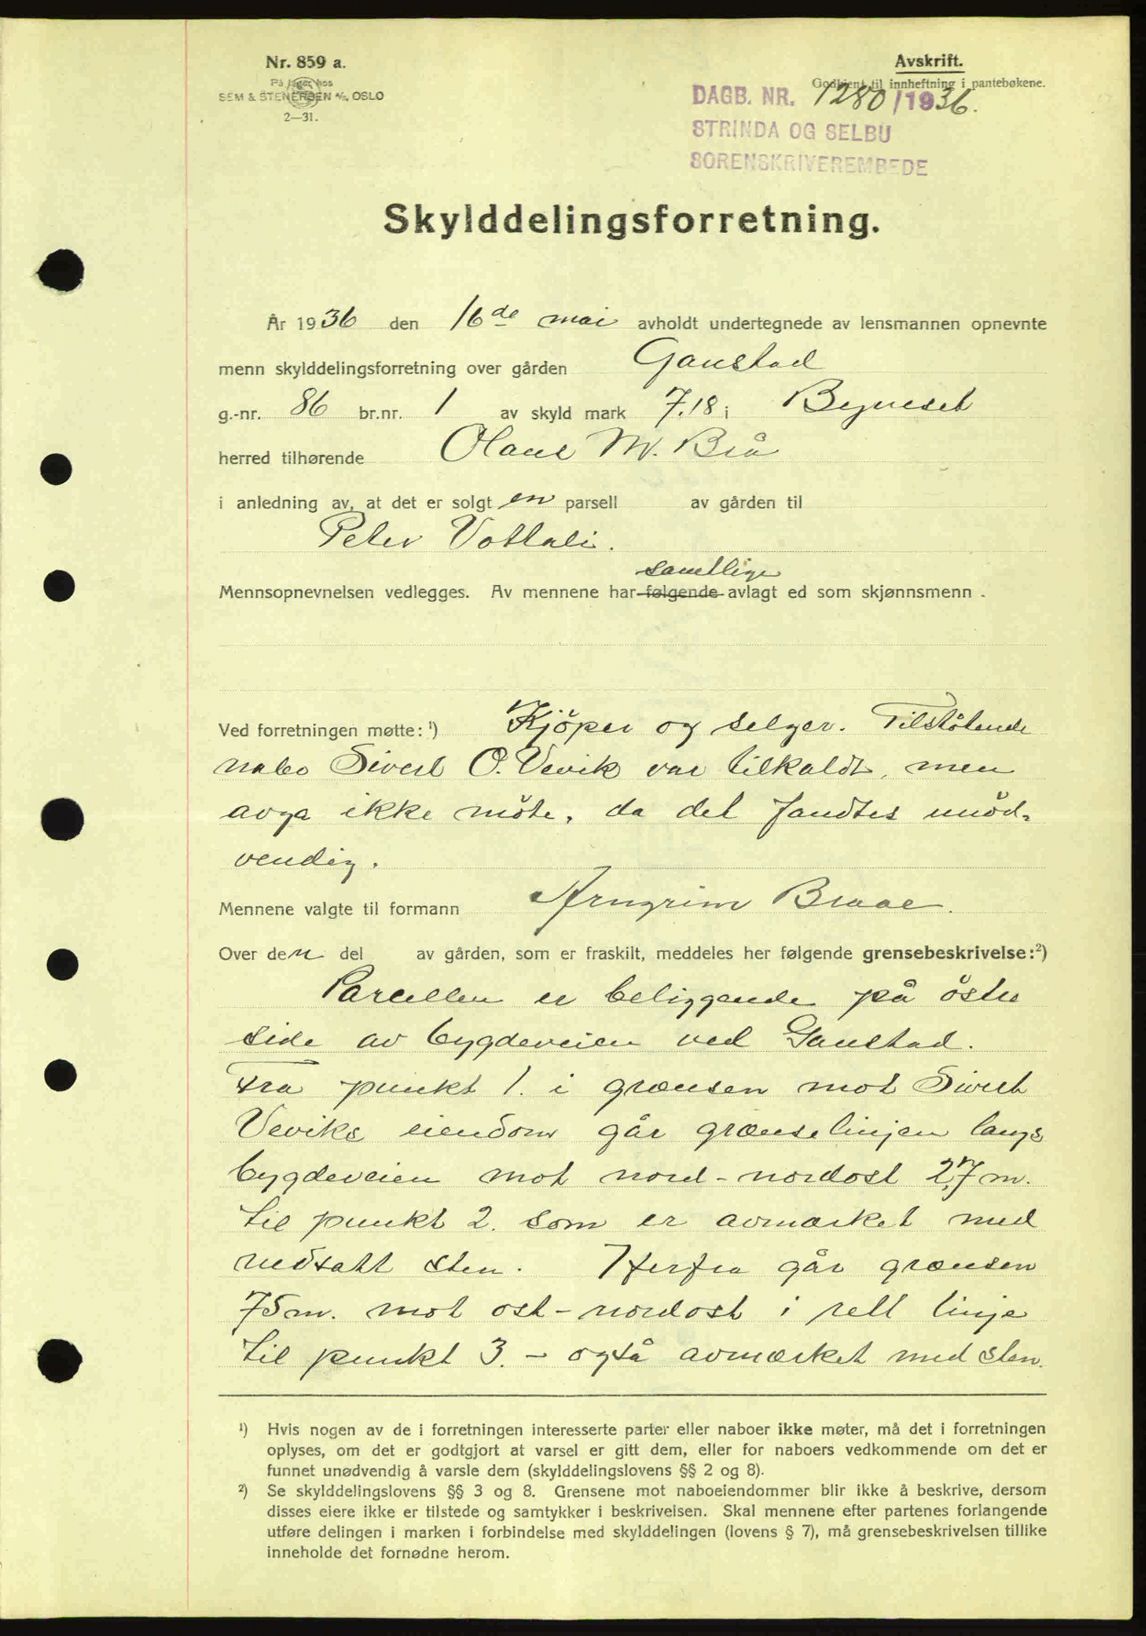 Nr. 859 a.
På lager hos
SEM & STENERSEN A/S, OSLO
2—31.
Avskrift.
Godkjent til innheftning i pantebøkene.
DAGB. NR. 1280/1936.
STRINDA OG SELBU
SORENSKRIVEREMBEDE
Skylddelingsforretning.
År 1936 den 16de mai avholdt undertegnede av lensmannen opnevnte
menn skylddelingsforretning over gården Gaustad
g.-nr. 86 br.nr. 1 av skyld mark 7.18 i Byneset
herred tilhørende Olaus M. Brå
i anledning av, at det er solgt en parsell av gården til
Peter
samtlige
Mennsopnevnelsen vedlegges. Av mennene har følgende avlagt ed som skjønnsmenn.
Ved forretningen møtte: ¹) Kjöper og selger. Tilstötende
nabo Sivert O. Vevik var tilkaldt, men
avga ikke möte, da det fandtes unöd-
vendig.
Mennene valgte til formann Arngrim Braae.
Over den del av gården, som er fraskilt, meddeles her følgende grensebeskrivelse: ²)
Parcellen er beliggende på östre
side av bygdeveien ved Gaustad.
Fra punkt 1. i grænsen mot Sivert
Veviks eiendom går grænselinjen langs
bygdeveien mot nord-nordost 27 m.
til punkt 2. som er avmærket med
nedsatt sten. Herfra går grænsen
75 m. mot ost-nordost i rett linje
til punkt 3. - også avmærket med sten.
¹) Hvis nogen av de i forretningen interesserte parter eller naboer ikke møter, må det i forretningen
oplyses, om det er godtgjort at varsel er gitt dem, eller for naboers vedkommende om det er
funnet unødvendig å varsle dem (skylddelingslovens §§ 2 og 8).
²) Se skylddelingslovens §§ 3 og 8. Grensene mot naboeiendommer blir ikke å beskrive, dersom
disses eiere ikke er tilstede og samtykker i beskrivelsen. Skal mennene efter partenes forlangende
utføre delingen i marken i forbindelse med skylddelingen (lovens § 7), må grensebeskrivelsen tillike
inneholde det fornødne herom.